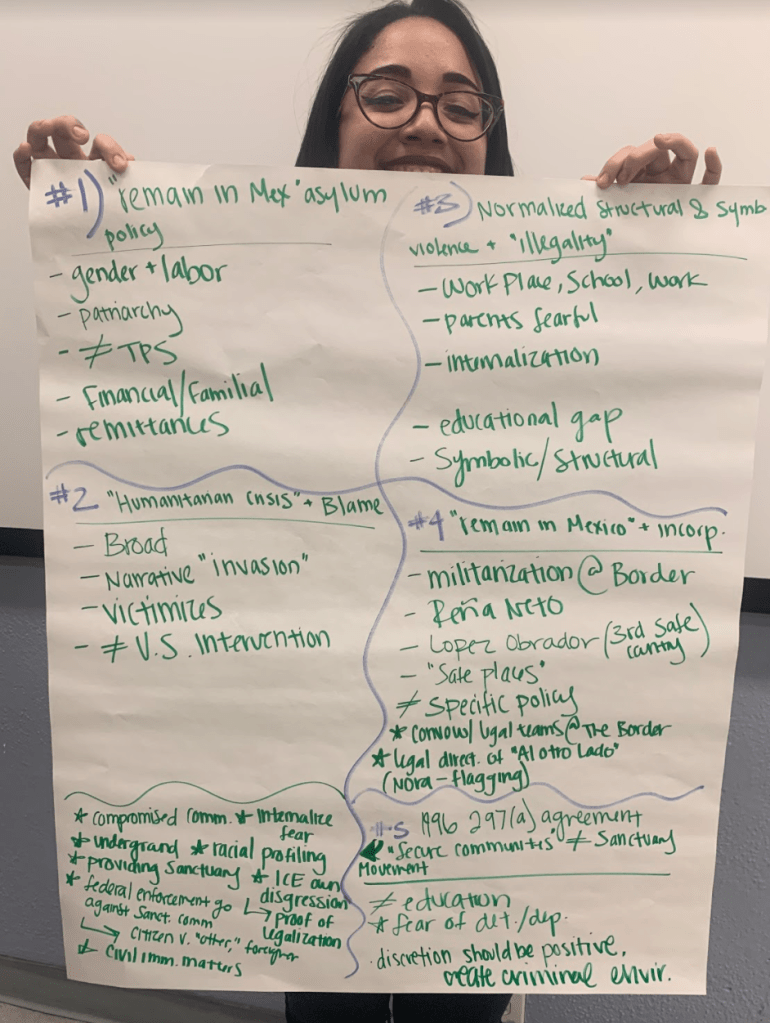 #1) "remain in Mex" asylum
policy
- gender + labor
- patriarchy
- ≠ TPS
- Financial/Familial
- remittances
#2 "Humanitarian Crisis" + Blame
- Broad
- Narrative "invasion"
- victimizes
- ≠ U.S. Intervention
#3) Normalized Structural & Symb
violence + "illegality"
- Work Place, School, Work
- parents fearful
- internalization
- educational gap
- Symbolic/Structural
#4 "remain in Mexico" + incorp.
- militarization @ Border
- Peña Neto
- Lopez Obrador (3rd Safe
country)
- "Safe places"
≠ specific policy
* convow/ legal teams @ The Border
* legal direct. of "Al otro Lado"
(Nora - flagging)
* compromised comm. * Internalize
fear
* undergrand * racial profiling
* providing Sanctuary * ICE own
disgression
* federal enforcement go
against Sanct. comm
↳ proof of
legalization
↳ citizen v. "other," foreigner
* civil imm. matters
#5 1996 297(a) agreement
"Secure communities" ≠ Sanctuary
Movement
≠ education
* fear of det./dep.
. discretion should be positive,
create criminal envir.